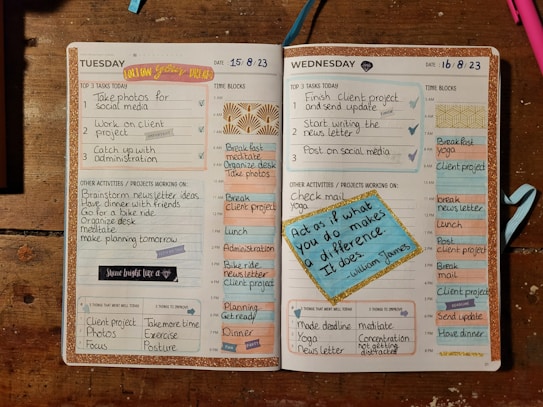 TUESDAY
FOLLOW your DREAM
DATE 15/8/23
TOP 3 TASKS TODAY
1 Take photos for
social media
2 Work on client
project
3 Catch up with
administration
OTHER ACTIVITIES / PROJECTS WORKING ON:
Brainstorm newsletter ideas
Have dinner with friends
Go for a bike ride
Organize desk
meditate
make planning tomorrow
Shine bright like a
3 THINGS THAT WENT WELL TODAY
Client project
Photos
Focus
3 THINGS TO IMPROVE
Take more time
Exercise
Posture
TIME BLOCKS
Breakfast
meditate
Organize desk
Take photos
Break
client project
Lunch
Administration
Bike ride
newsletter
Client project
Planning
Get ready
Dinner
WEDNESDAY
DATE 16/8/23
TOP 3 TASKS TODAY
1 Finish client project
and send update
2 Start writing the
newsletter
3 Post on social media
OTHER ACTIVITIES / PROJECTS WORKING ON:
Check mail
yoga
Act as if what
you do makes
a difference.
It does.
- William James
3 THINGS THAT WENT WELL TODAY
Made deadline
Yoga
Newsletter
3 THINGS TO IMPROVE
meditate
Concentration
not getting
distracted
TIME BLOCKS
Breakfast
yoga
Client project
break
newsletter
Lunch
Post
client project
Break
mail
Client project
Send update
Have dinner